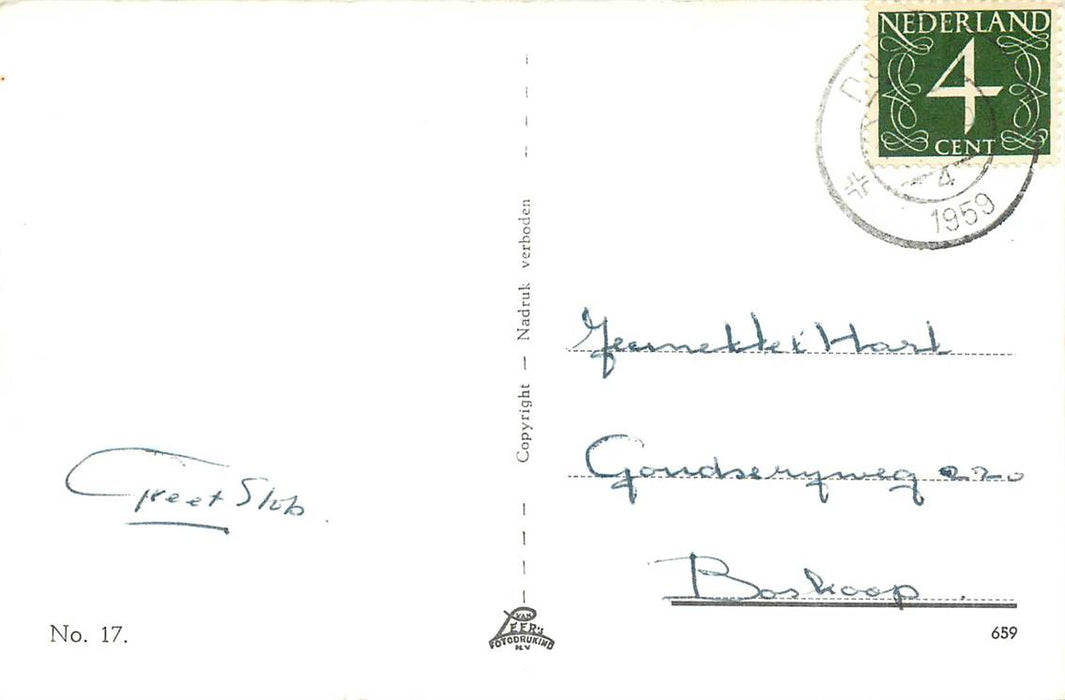 NEDERLAND
4
CENT
4
1959
Copyright — Nadruk verboden
Jeannette 't Hart
Goudserijweg 220
Boskoop.
Greet Slob.
No. 17.
VAN
LEER'S
FOTODRUKIND
N.V.
659